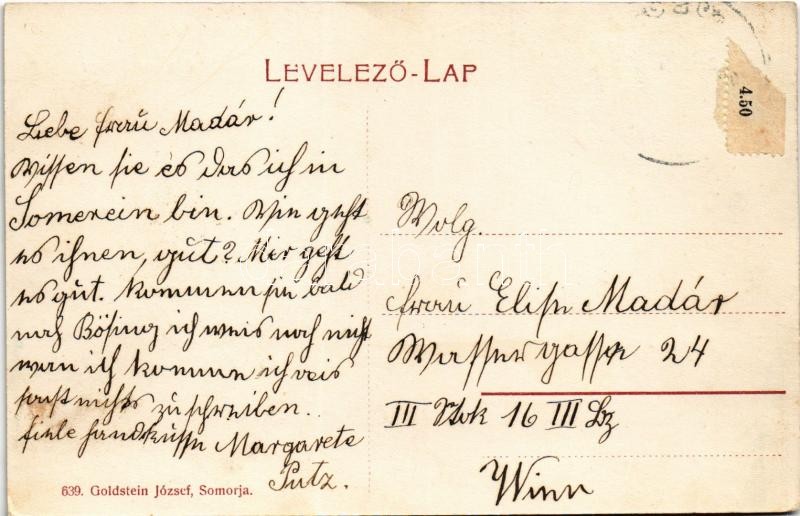 LEVELEZŐ-LAP
4.50
Liebe Frau Madár!
Wissen sie es das ich in
Somerein bin. Wie geht
es ihnen, gut? Mir geht
es gut. Kommen sie bald
nach Bösing ich weis noch nicht
wan ich komme ich weis
sonst nichts zu schreiben.
fiele handküsse Margarete
Putz.
Wolg.
Frau Elise Madár
Wassergasse 24
III Stok 16 III Bz
Wien
639. Goldstein József, Somorja.